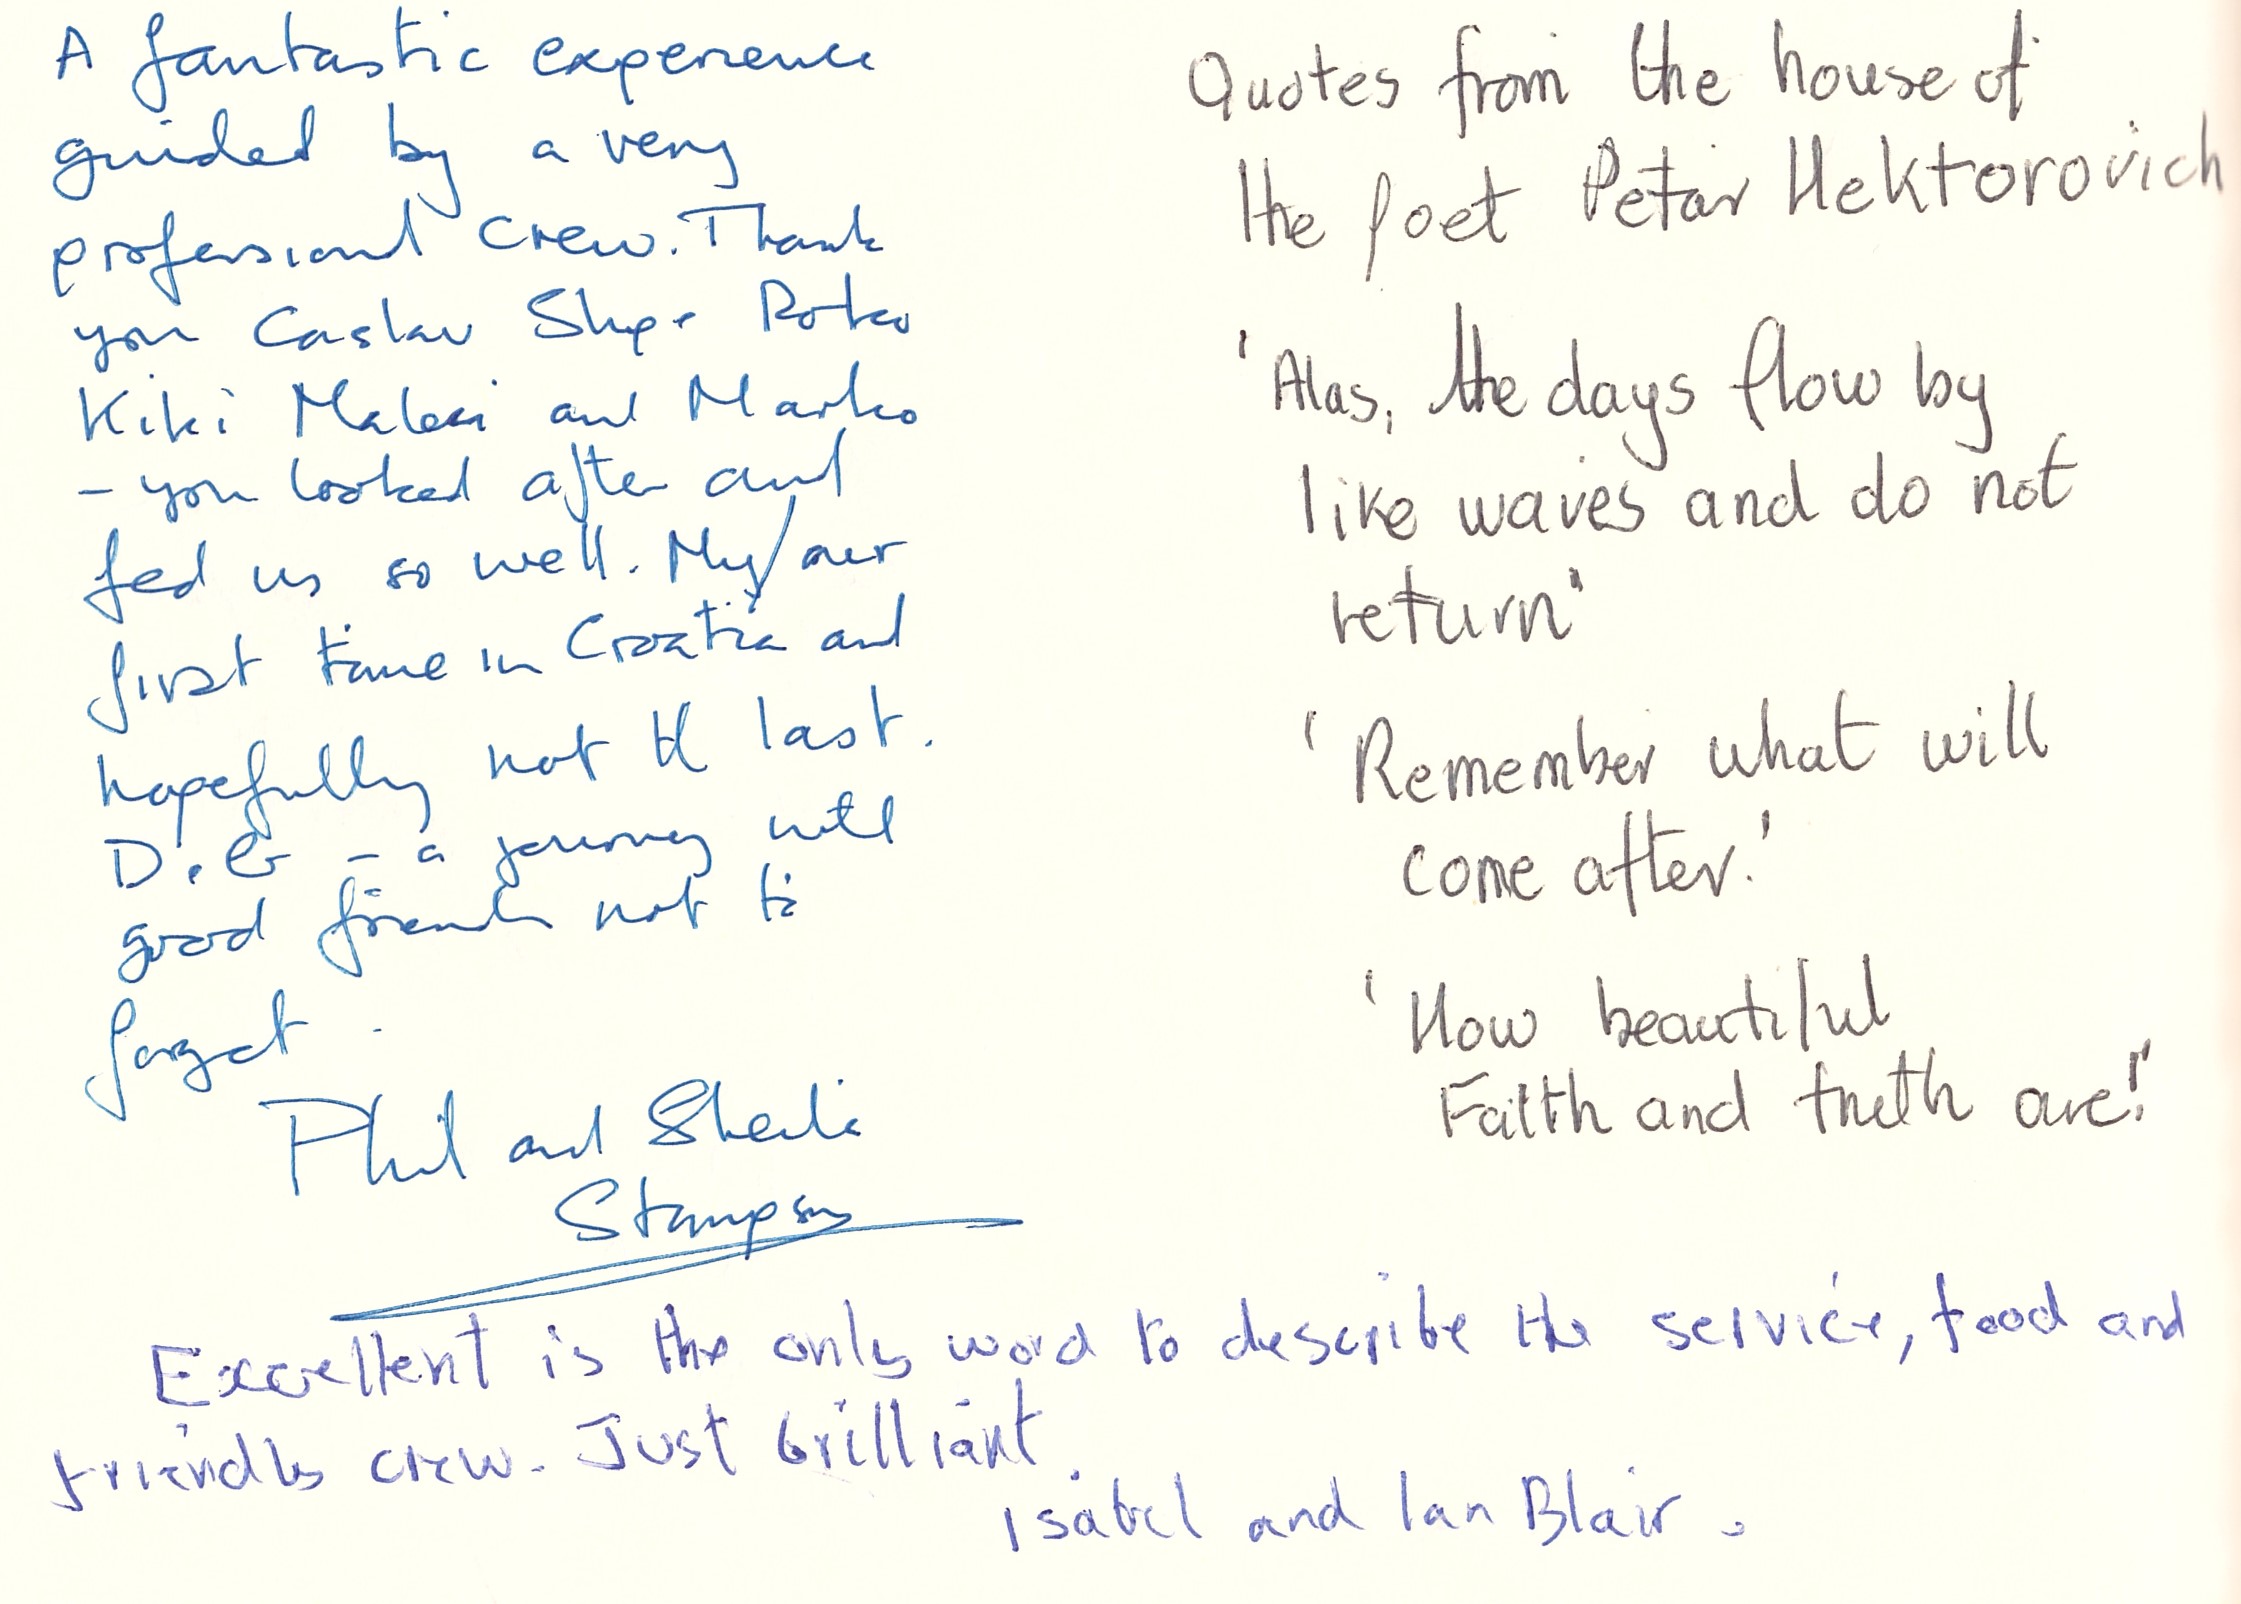 A fantastic experience
guided by a very
professional crew. Thank
you Caslav Roko
Kiki and Marko
- you looked after and
fed us so well. My/our
first time in Croatia and
hopefully not the last.
- a journey with
good friends not to
forget.
Phil and Sheila
Quotes from the house of
the poet Petar Hektorovich
'Alas, the days flow by
like waves and do not
return'
'Remember what will
come after.'
'How beautiful
Faith and truth are!'
Excellent is the only word to describe the service, food and
friendly crew. Just brilliant.
Isabel and Ian Blair.